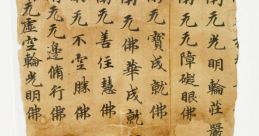 南无光明輪莊嚴
南无障礙眼佛
南无寶成就佛
南无佛華成就
南无善住慧佛
南无不空勝佛
无无邊脩行佛
无虛空輪光明佛